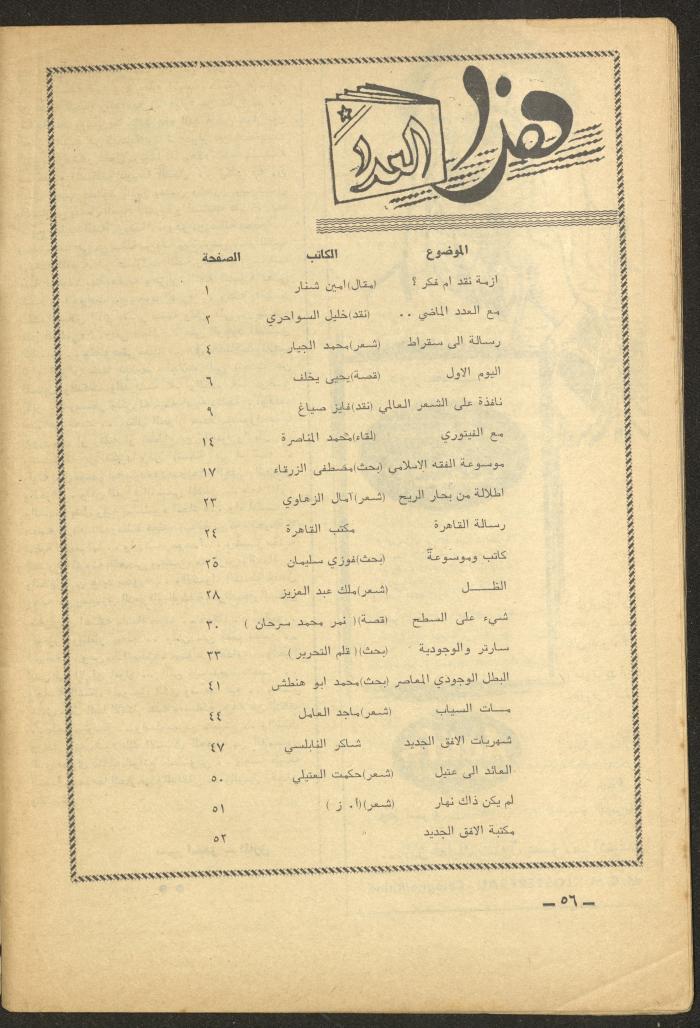 هذا
العدد
الموضوع الكاتب الصفحة
ازمة نقد ام فكر ؟ (مقال)امين شنار ١
مع العدد الماضي .. (نقد)خليل السواحري ٢
رسالة الى سقراط (شعر)محمد الجيار ٤
اليوم الاول (قصة)يحيى يخلف ٦
نافذة على الشعر العالمي (نقد)فايز صياغ ٩
مع الفيتوري (لقاء)محمد المناصرة ١٤
موسوعة الفقه الاسلامي (بحث)مصطفى الزرقاء ١٧
اطلالة من بحار الريح (شعر)آمال الزهاوي ٢٣
رسالة القاهرة مكتب القاهرة ٢٤
كاتب وموسوعة (بحث)فوزي سليمان ٢٥
الظــــل (شعر)ملك عبد العزيز ٢٨
شيء على السطح (قصة)( نمر محمد سرحان ) ٣٠
سارتر والوجودية (بحث)( قلم التحرير ) ٣٣
البطل الوجودي المعاصر (بحث)محمد ابو هنطش ٤١
مــات السياب (شعر)ماجد العامل ٤٤
شهريات الافق الجديد شاكر النابلسي ٤٧
العائد الى عتيل (شعر)حكمت العتيلي ٥٠
لم يكن ذاك نهار (شعر)(أ. ز ) ٥١
مكتبة الافق الجديد ٥٢
— ٥٦ —